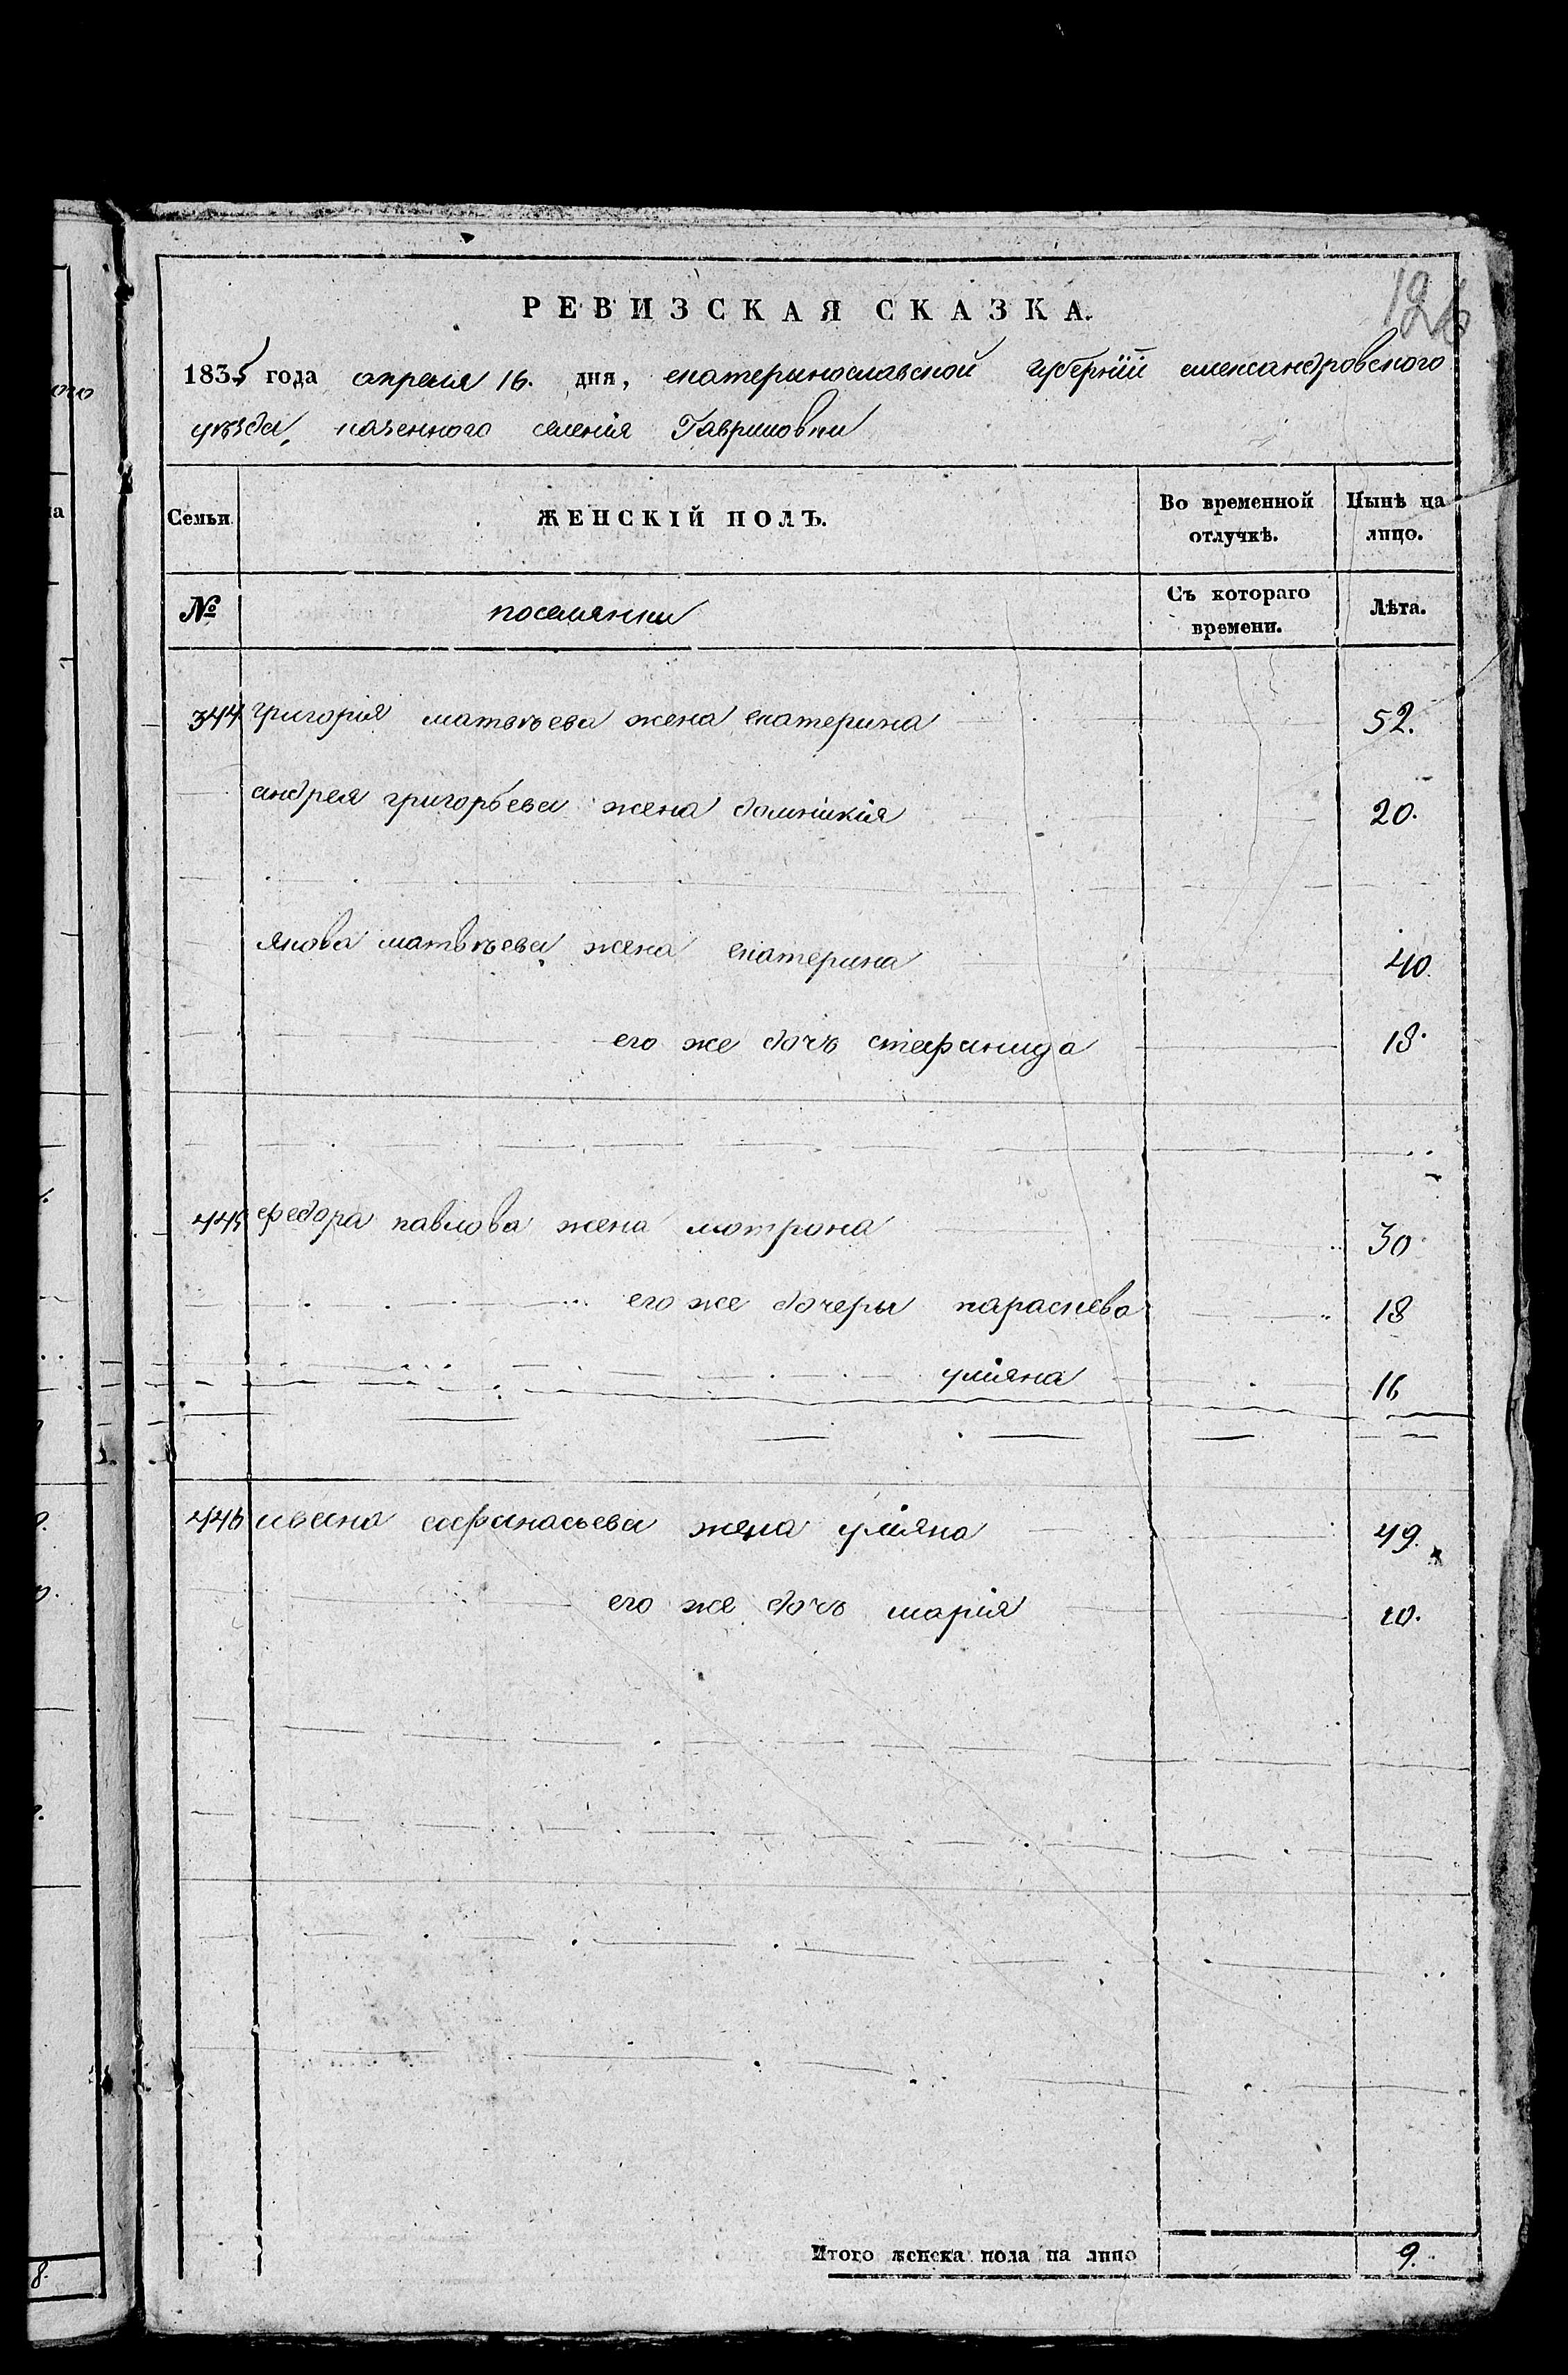 126
РЕВИЗСКАЯ СКАЗКА.
1835 года апреля 16. дня, екатеринославской губернїй александровского
уѣзда, казенного селенія Гавриловки
Семьи ЖЕНСКІЙ ПОЛЪ. Во временной отлучкѣ. Нынѣ на лицо.
№ поселянки Съ котораго времени. Лѣта.
344 григорія матвѣева жена екатерина 52.
андрея григорьева жена домникія 20.
якова матвѣева жена екатерина 40.
его же дочь стефанида 18.
445 федора павлова жена мотрона 30
его же дочеры параскева 18
уліяна 16
446 ивана афанасьева жена уліяна 49.
его же дочь марія 10.
Итого женска пола на лицо 9.
8.